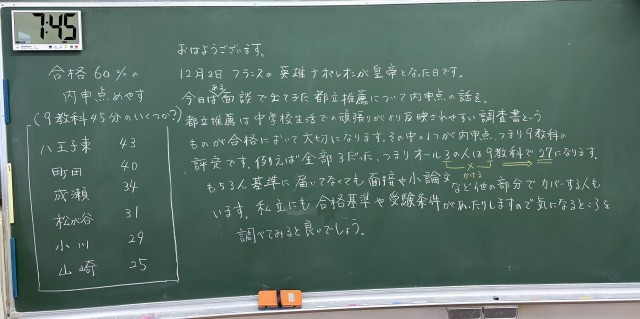 7:45
合格60%の
内申点めやす
(9教科45分のいくつか?)
八王子東 43
町田 40
成瀬 34
松が谷 31
小川 29
山崎 25
おはようございます。
12月2日 フランスの英雄ナポレオンが皇帝となった日です。
今日は面談で出てきた都立推薦について内申点の話を。
都立推薦は中学校生活での頑張りがより反映されやすい調査書という
ものが合格において大切になります。その中の1つが内申点、つまり9教科の
評定です。例えば全部3だった、つまりオール3の人は9教科で27になります。
× かける
もちろん基準に届いてなくても面接や小論文など他の部分でカバーする人も
います。私立にも合格基準や受験条件があったりしますので気になるところを
調べてみると良いでしょう。